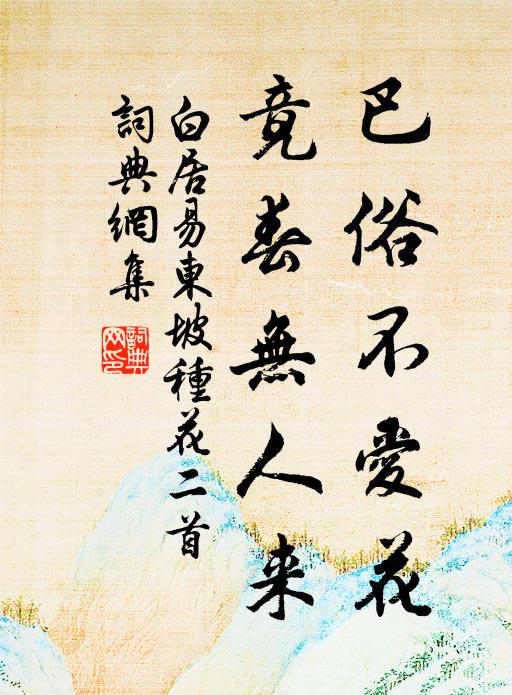 巴俗不愛花
竟春無人来
白居易東坡種花二首
詞典網集
詞典网印